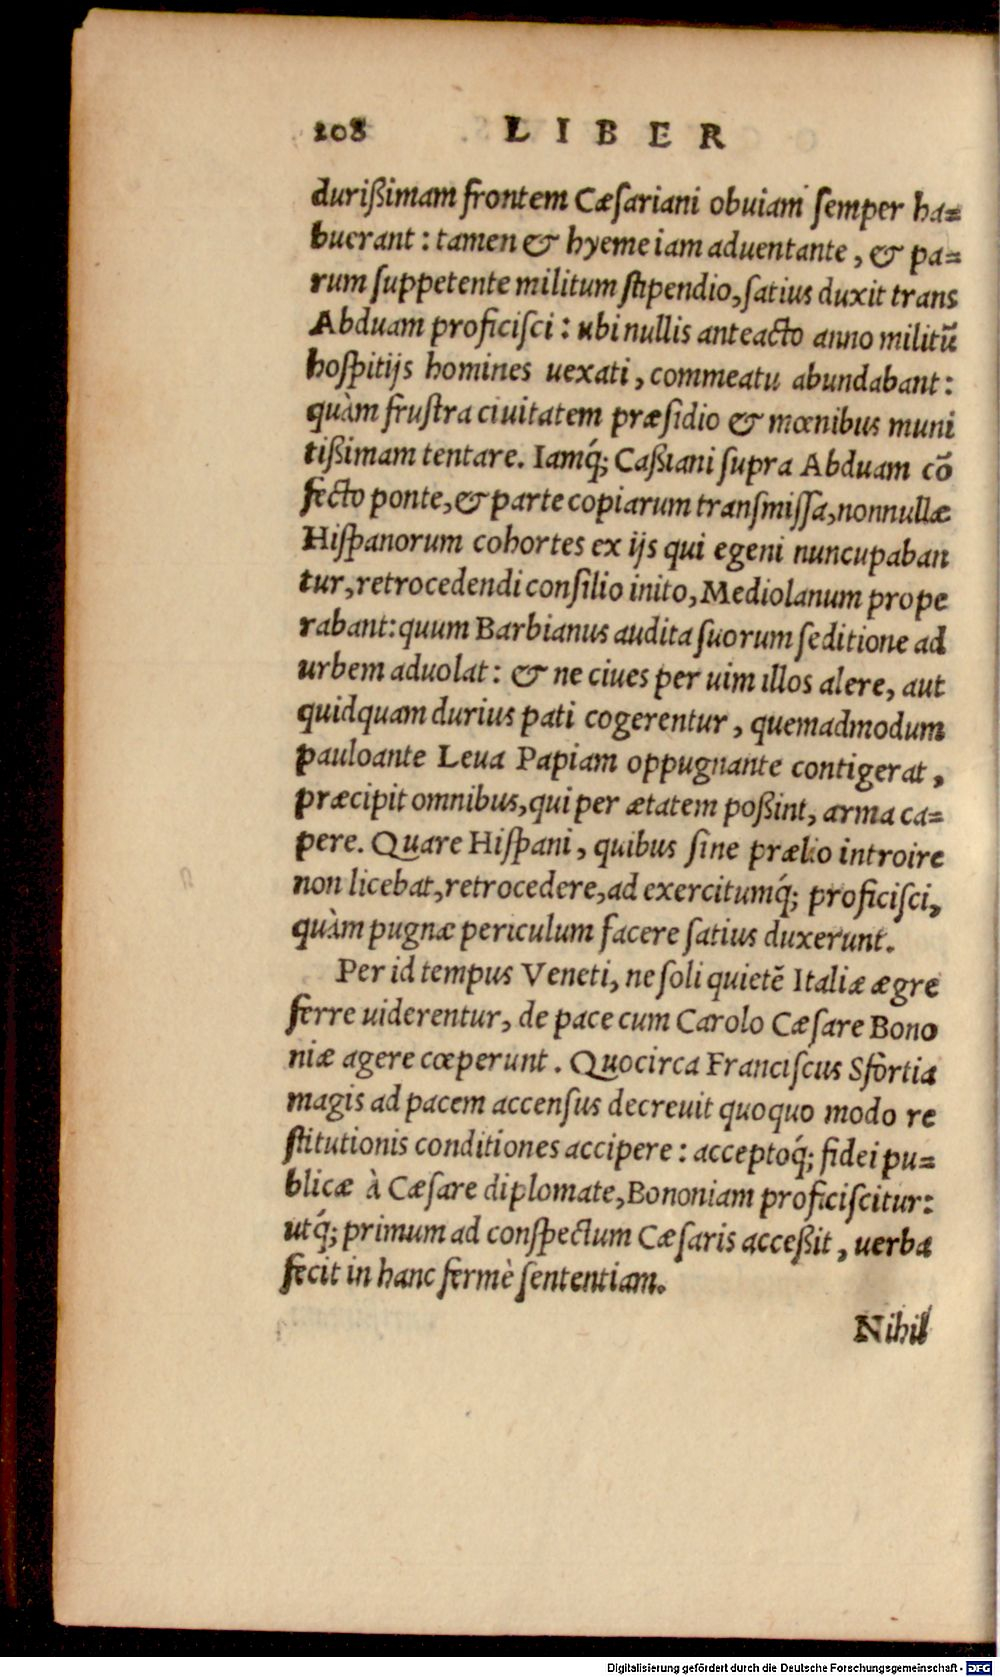 208 LIBER
durißimam frontem Cæſariani obuiam ſemper ha=
buerant: tamen & hyeme iam aduentante, & pa=
rum ſuppetente militum ſtipendio, ſatius duxit trans
Abduam proficiſci: ubi nullis anteacto anno militũ
hoſpitijs homines uexati, commeatu abundabant:
quàm fruſtra ciuitatem præſidio & mœnibus muni
tißimam tentare. Iamq́; Caßiani ſupra Abduam cō
fecto ponte, & parte copiarum tranſmiſſa, nonnullæ
Hiſpanorum cohortes ex ijs qui egeni nuncupaban
tur, retrocedendi conſilio inito, Mediolanum prope
rabant: quum Barbianus audita ſuorum ſeditione ad
urbem aduolat: & ne ciues per uim illos alere, aut
quidquam durius pati cogerentur, quemadmodum
pauloante Leua Papiam oppugnante contigerat,
præcipit omnibus, qui per ætatem poßint, arma ca=
pere. Quare Hiſpani, quibus ſine prælio introire
non licebat, retrocedere, ad exercitumq́; proficiſci,
quàm pugnæ periculum facere ſatius duxerunt.
Per id tempus Veneti, ne ſoli quietē Italiæ ægre
ferre uiderentur, de pace cum Carolo Cæſare Bono
niæ agere cœperunt. Quocirca Franciſcus Sfortia
magis ad pacem accenſus decreuit quoquo modo re
ſtitutionis conditiones accipere: acceptoq́; fidei pu=
blicæ à Cæſare diplomate, Bononiam proficiſcitur:
utq́; primum ad conſpectum Cæſaris acceßit, uerba
fecit in hanc fermè ſententiam.
Nihil
Digitalisierung gefördert durch die Deutsche Forschungsgemeinschaft - DFG